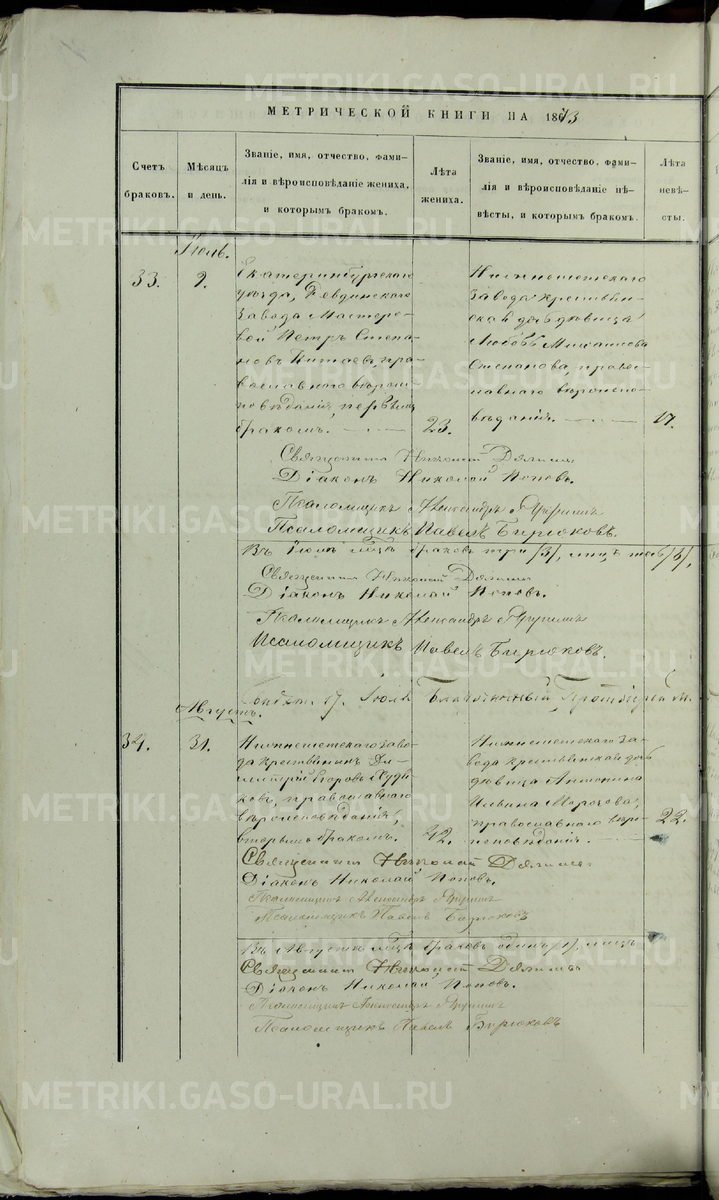 МЕТРИЧЕСКОЙ КНИГИ НА 1873
Счетъ
браковъ.
Мѣсяцъ
и день.
Званіе, имя, отчество, фами-
лія и вѣроисповѣданіе жениха,
и которымъ бракомъ.
Лѣта
жениха.
Званіе, имя, отчество, фами-
лія и вѣроисповѣданіе не-
вѣсты, и которымъ бракомъ.
Лѣта
невѣ-
сты.
Іюль.
33.
9.
Екатеринбургскаго
уѣзда, Ревдинскаго
завода мастеро-
вой Петръ Степа-
новъ Китаевъ, пра-
вославнаго вѣроис-
повѣданія, первымъ
бракомъ.
23.
завода крестьян-
ская дѣвица
Любовь
Степанова, правос-
лавнаго вѣроиспо-
вѣданія.
17.
Священникъ
Діаконъ Николай Поповъ.
Псаломщикъ Александръ
Псаломщикъ Павелъ Бирюковъ.
Въ Іюлѣ м-цѣ браковъ три /3/,
Священникъ
Діаконъ Николай Поповъ.
Псаломщикъ Александръ
Псаломщикъ Павелъ Бирюковъ.
17. Іюля Благочинный
Августъ.
34.
31.
завода крестьянинъ Ди-
митрій Егоровъ
православнаго
вѣроисповѣданія,
вторымъ бракомъ.
42.
за-
вода крестьянская
дѣвица Антонина
Ильина Морозова,
православнаго вѣро-
исповѣданія.
22.
Священникъ
Діаконъ Николай Поповъ.
Псаломщикъ Александръ
Псаломщикъ Павелъ Бирюковъ
Въ Августѣ м-цѣ браковъ одинъ /1/,
Священникъ
Діаконъ Николай Поповъ.
Псаломщикъ Александръ
Псаломщикъ Павелъ Бирюковъ
METRIKI.GASO-URAL.RU